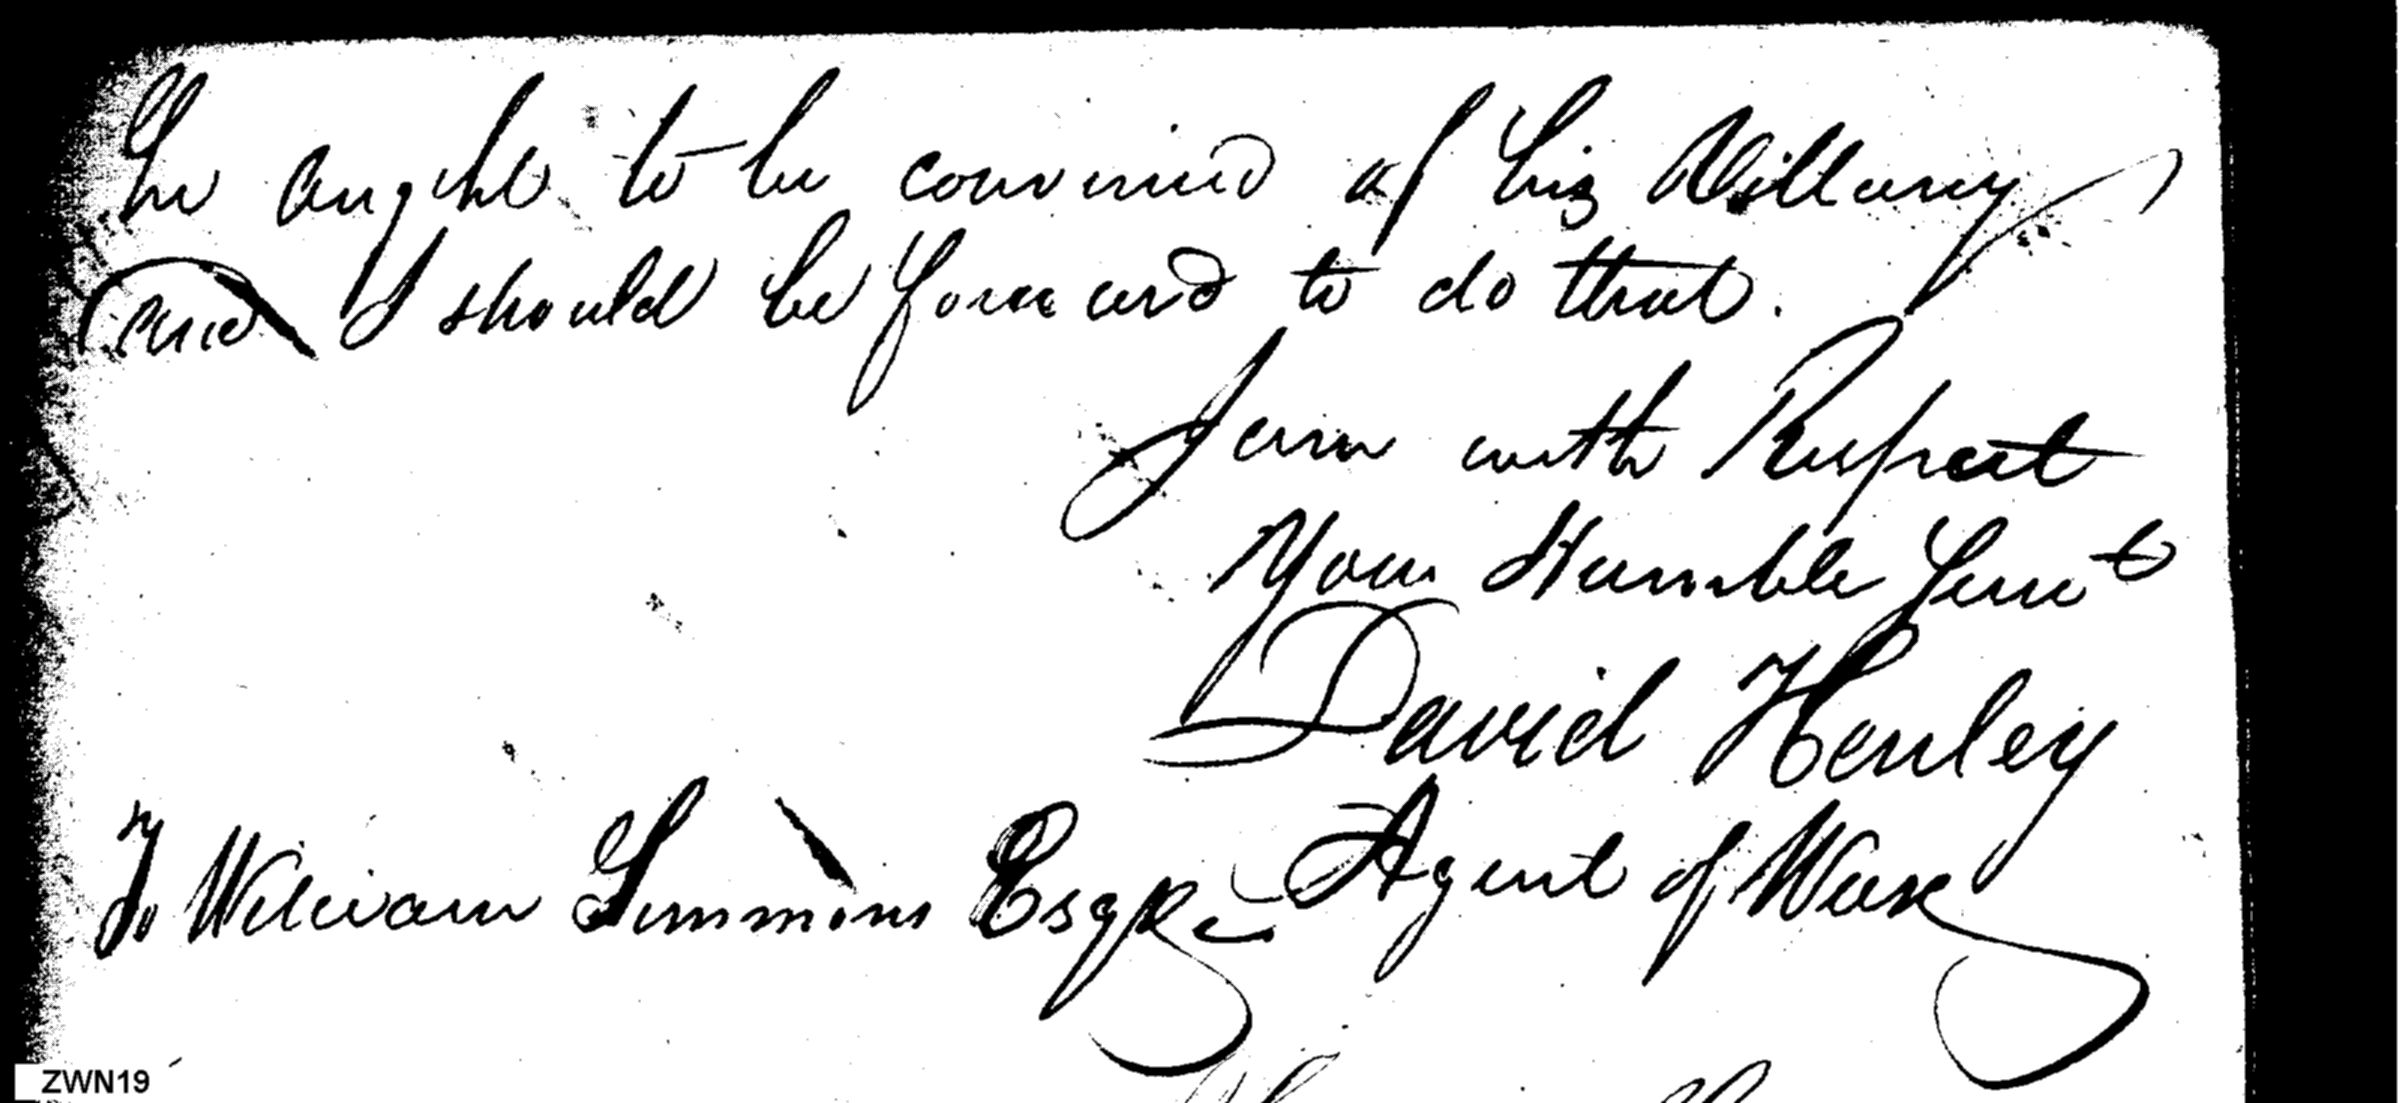 he aught to be convinced of his Villany
and I should be forward to do that.
I am with Respect
Your Humble Servt
David Henley
Agent of War
To William Simmons Esqre
ZWN19